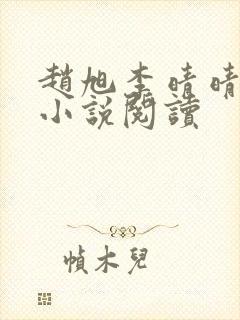 趙旭李晴晴
小說閱讀
幀木兒